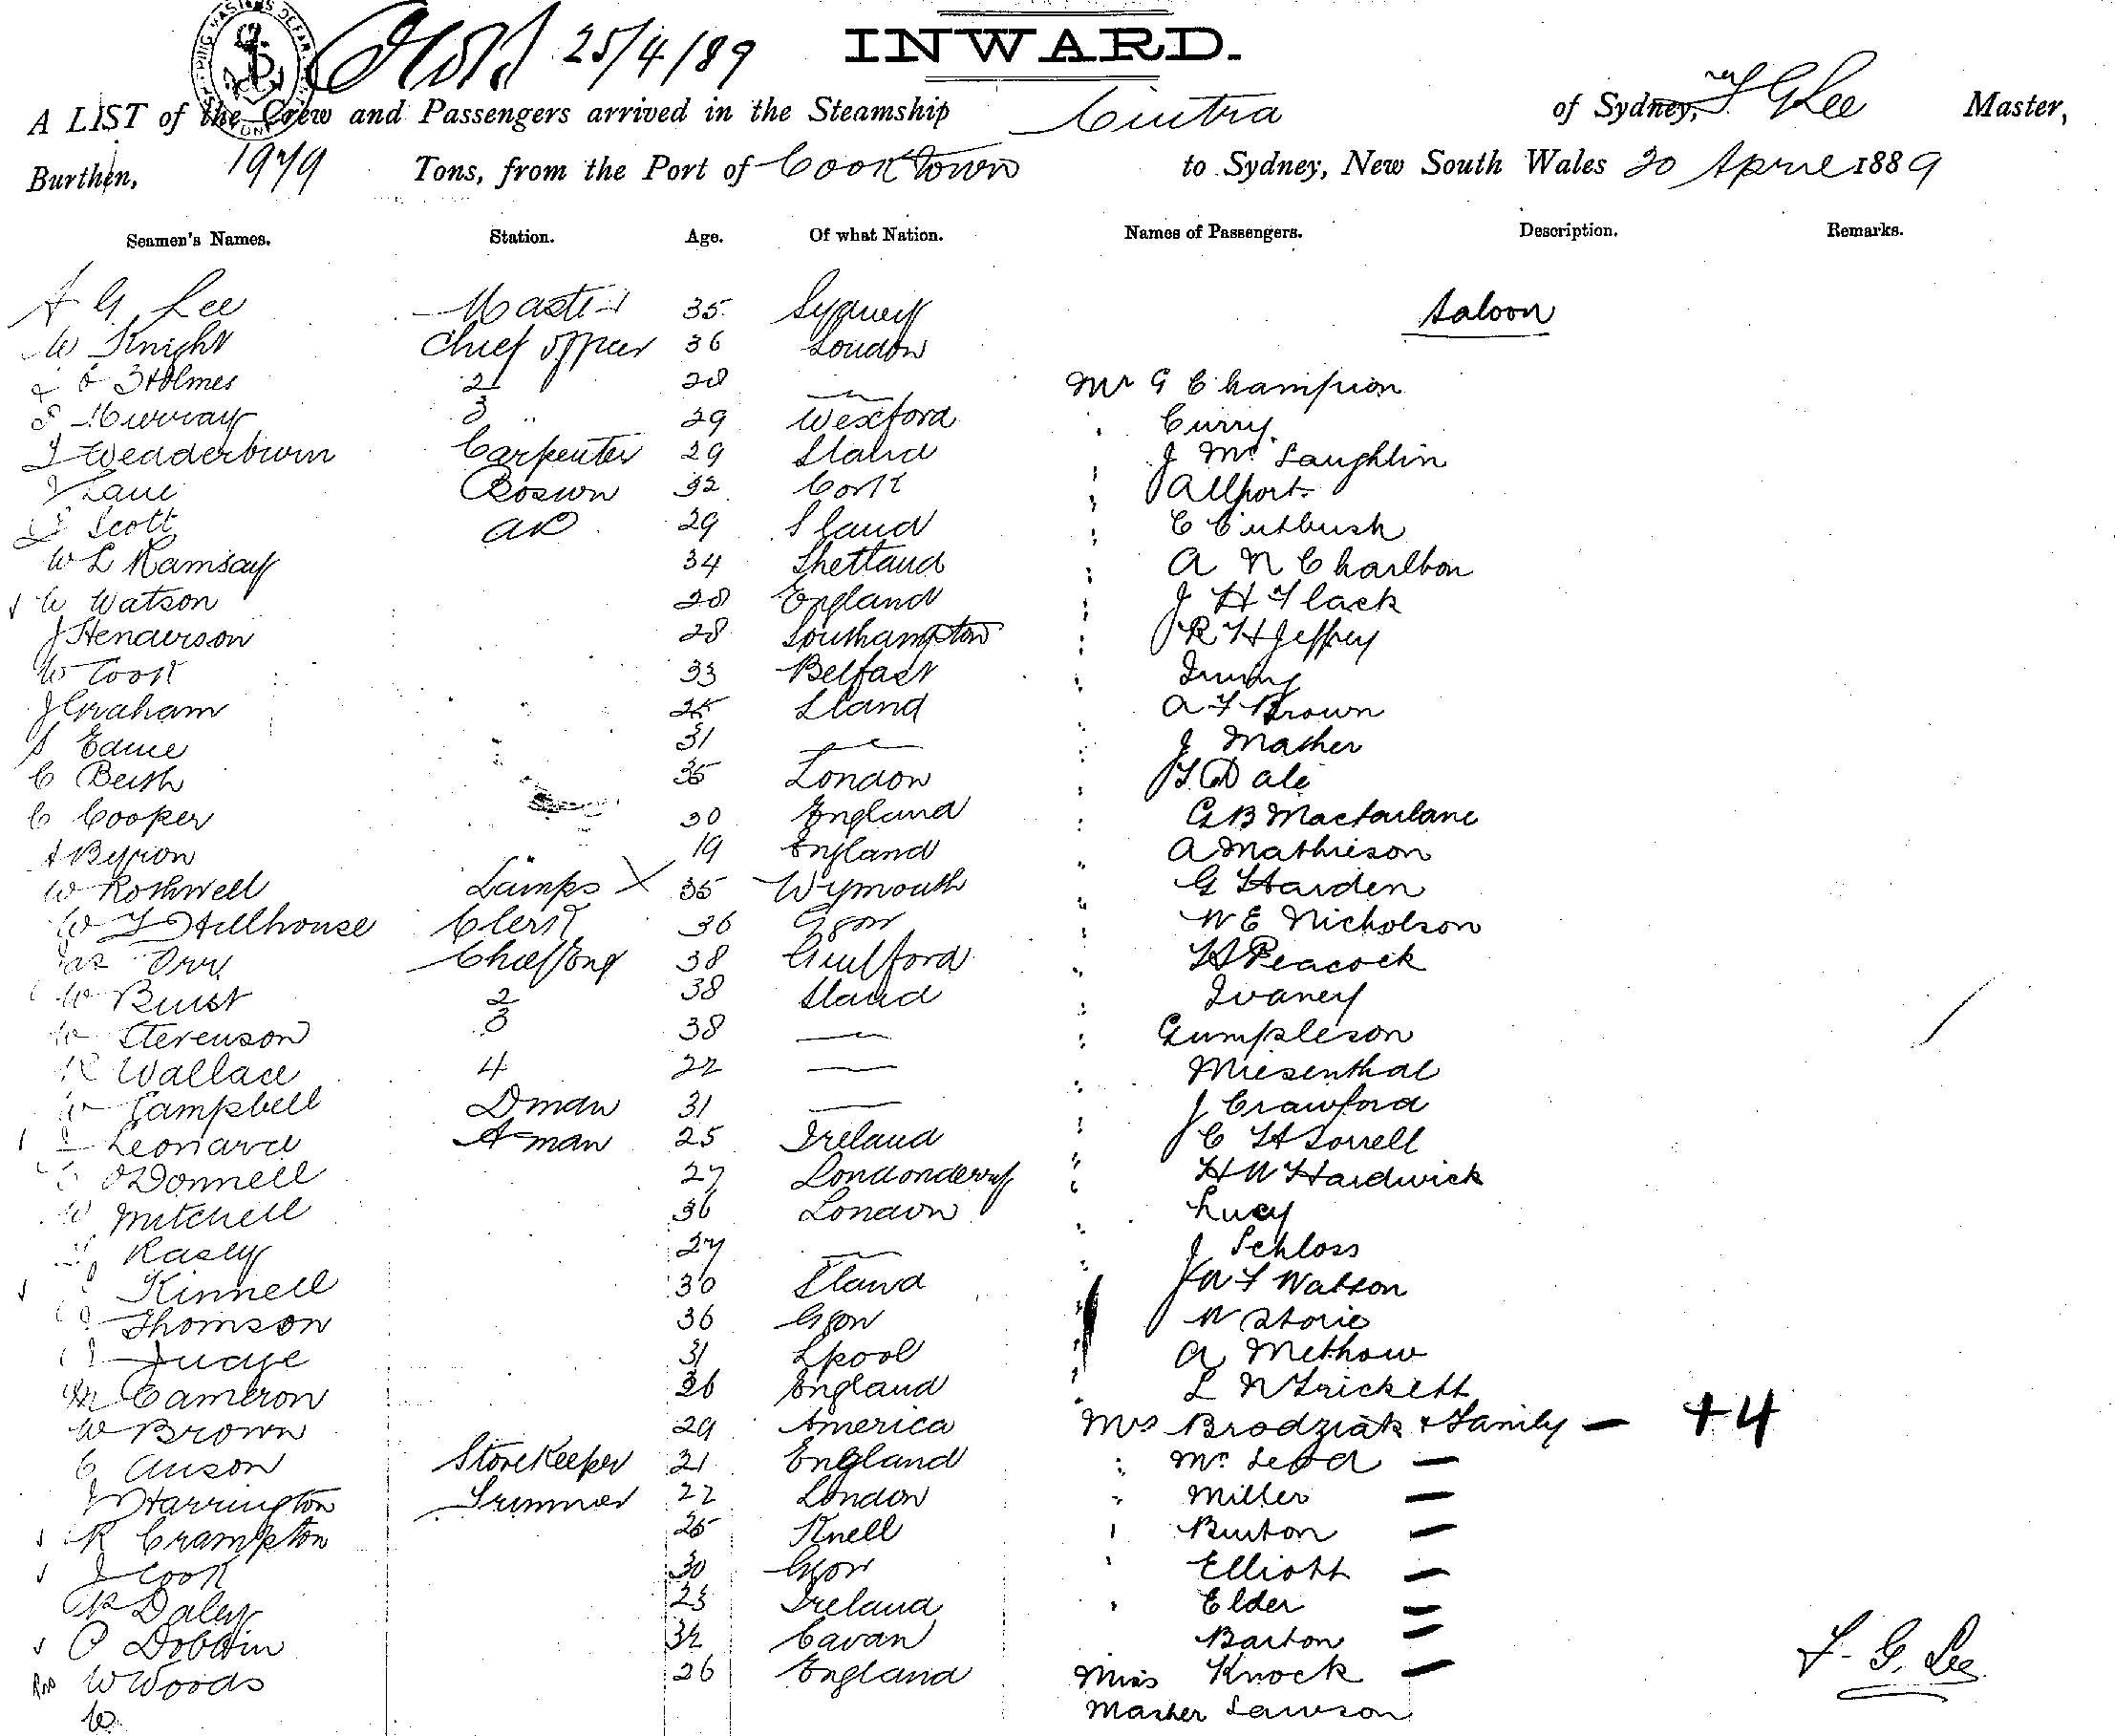 25/4/89 INWARD.
A LIST of the Crew and Passengers arrived in the Steamship Cintra of Sydney, F G Lee Master,
Burthen, 1979 Tons, from the Port of Cooktown to Sydney, New South Wales 20 April 1889
Seamen's Names. Station. Age. Of what Nation. Names of Passengers. Description. Remarks.
Saloon
F G Lee Master 35 Sydney
W Knight Chief Officer 36 London
Holmes 2 28 — Mr G Champion
Murray 3 " 29 Wexford " Curry
Wedderburn Carpenter 29 Sland " J McLaughlin
J Lane Boswn 32 Cork " Allport
Scott AB 29 Sland " C Cutbush
W L Ramsay 34 Shetland " A N Charlton
W Watson 28 England " J H Flack
J Henderson 28 Southampton " R H Jeffrey
W Cook 33 Belfast " Irving
J Graham 25 Sland " A F Brown
31 — " J Mather
C Beith 35 London " T Dale
C Cooper 30 England " G B Macfarlane
A Byron 19 England " A Mathieson
W Rothwell Lamps X 35 Wymouth " G Harden
W Hillhouse Clerk 36 Ggow " W E Nicholson
Jas Orr Chief Eng 38 Guilford " H Peacock
W Buist 2 38 Sland " Ivaney
W Stevenson 3 38 — " Gumpleson
R Wallace 4 22 — " Miesenthal
Campbell Dman 31 — " J Crawford
Leonard A man 25 Ireland " C H Sorrell
O'Donnell 27 Londonderry " H W Hardwick
W Mitchell 36 London " Lucy
Rasey 27 — " J Schloss
Kinnell 30 Sland " W F Watson
Thomson 36 Ggow " W Storie
Judge 31 Lpool " A Methow
Cameron 26 England " L N Trickett
W Brown 29 America Mrs Brodziak & Family — +4
C Anson Storekeeper 21 England " McLeod —
J Harrington Trimmer 22 London " Miller —
R Crampton 25 Knell " Burton —
J Cook 30 Ggow " Elliott —
Daley 23 Ireland " Elder —
P Dobbin 32 Cavan Barton —
W Woods 26 England Miss Knock —
W Master Lawson
F. G. Lee